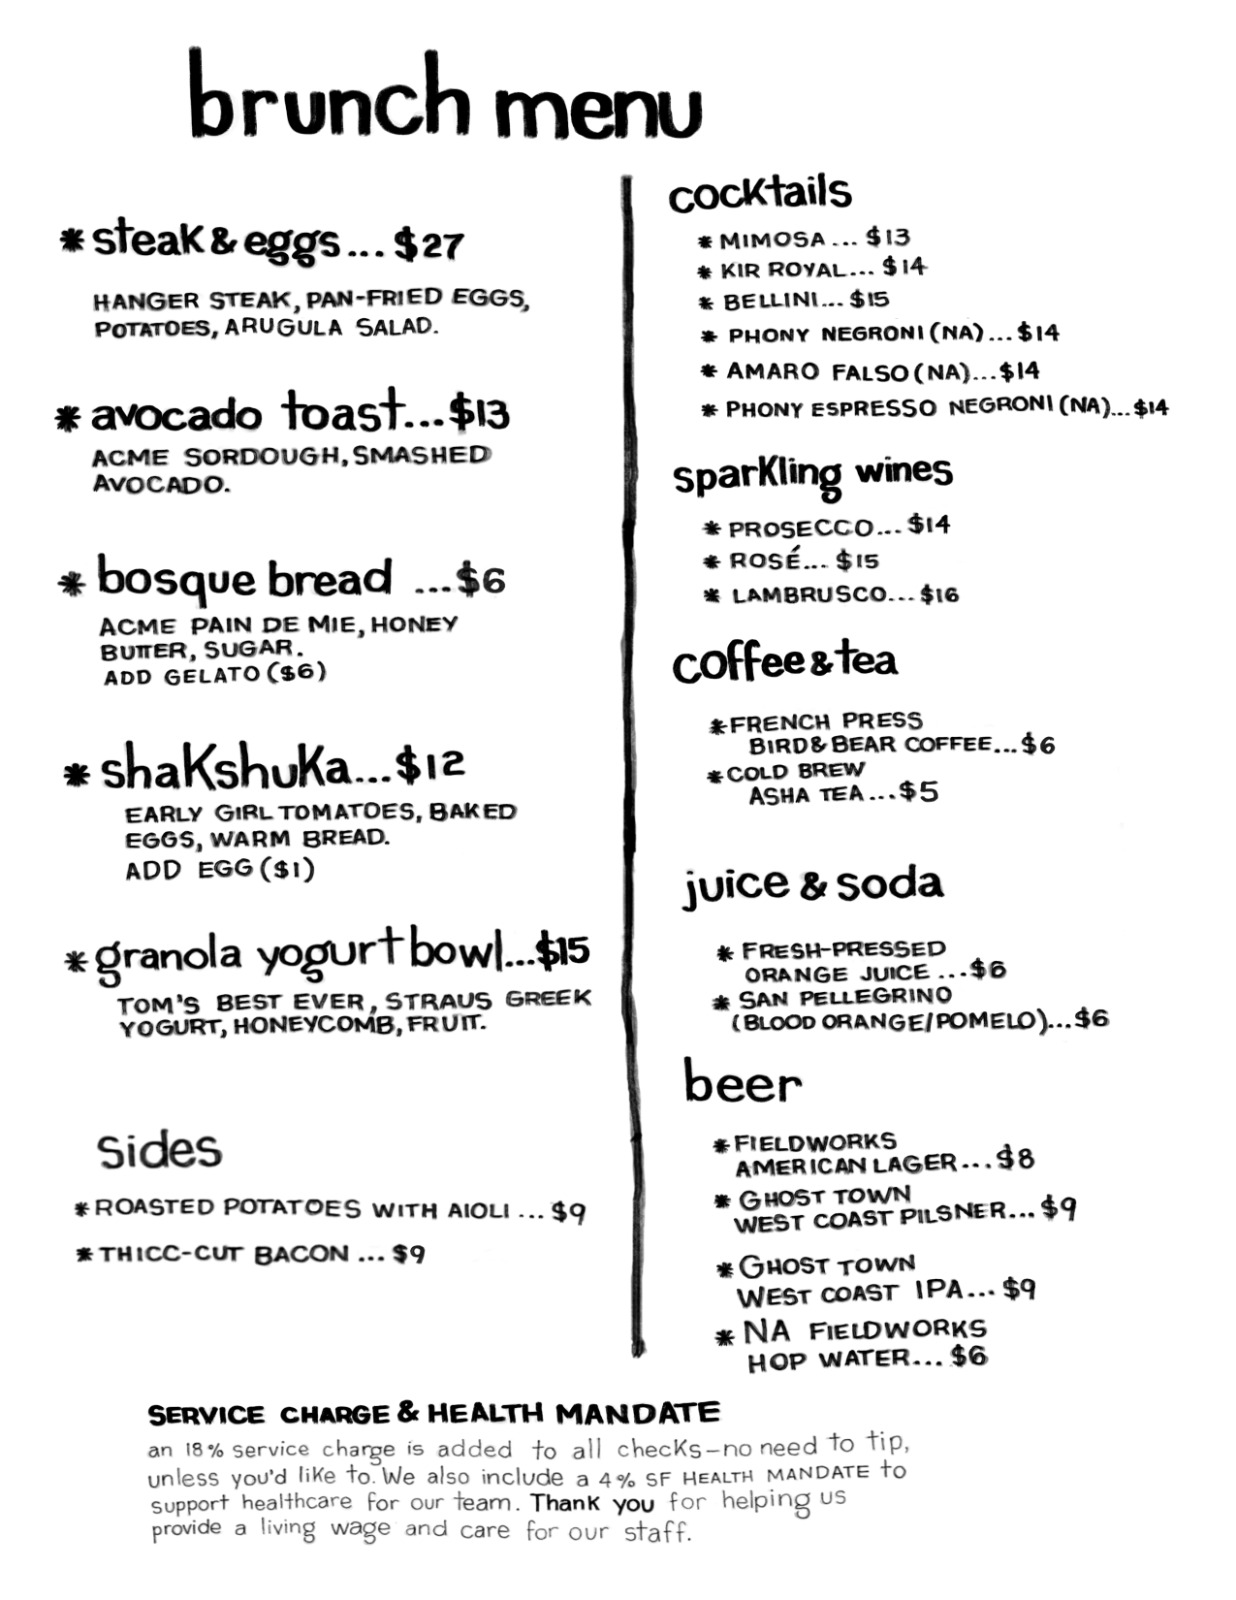 brunch menu
* steak & eggs... $27
HANGER STEAK, PAN-FRIED EGGS,
POTATOES, ARUGULA SALAD.
* avocado toast...$13
ACME SORDOUGH, SMASHED
AVOCADO.
* bosque bread ...$6
ACME PAIN DE MIE, HONEY
BUTTER, SUGAR.
ADD GELATO ($6)
* shakshuka...$12
EARLY GIRL TOMATOES, BAKED
EGGS, WARM BREAD.
ADD EGG ($1)
* granola yogurt bowl...$15
TOM'S BEST EVER, STRAUS GREEK
YOGURT, HONEYCOMB, FRUIT.
sides
* ROASTED POTATOES WITH AIOLI ... $9
* THICC-CUT BACON ... $9
cocktails
* MIMOSA ... $13
* KIR ROYAL... $14
* BELLINI... $15
* PHONY NEGRONI (NA) ... $14
* AMARO FALSO (NA)...$14
* PHONY ESPRESSO NEGRONI (NA)...$14
sparkling wines
* PROSECCO... $14
* ROSÉ... $15
* LAMBRUSCO... $16
coffee & tea
* FRENCH PRESS
BIRD & BEAR COFFEE...$6
* COLD BREW
ASHA TEA ...$5
juice & soda
* FRESH-PRESSED
ORANGE JUICE ...$6
* SAN PELLEGRINO
(BLOOD ORANGE/POMELO)...$6
beer
* FIELDWORKS
AMERICAN LAGER...$8
* GHOST TOWN
WEST COAST PILSNER... $9
* GHOST TOWN
WEST COAST IPA... $9
* NA FIELDWORKS
HOP WATER... $6
SERVICE CHARGE & HEALTH MANDATE
an 18% service charge is added to all checks—no need to tip,
unless you'd like to. We also include a 4% SF HEALTH MANDATE to
support healthcare for our team. Thank you for helping us
provide a living wage and care for our staff.